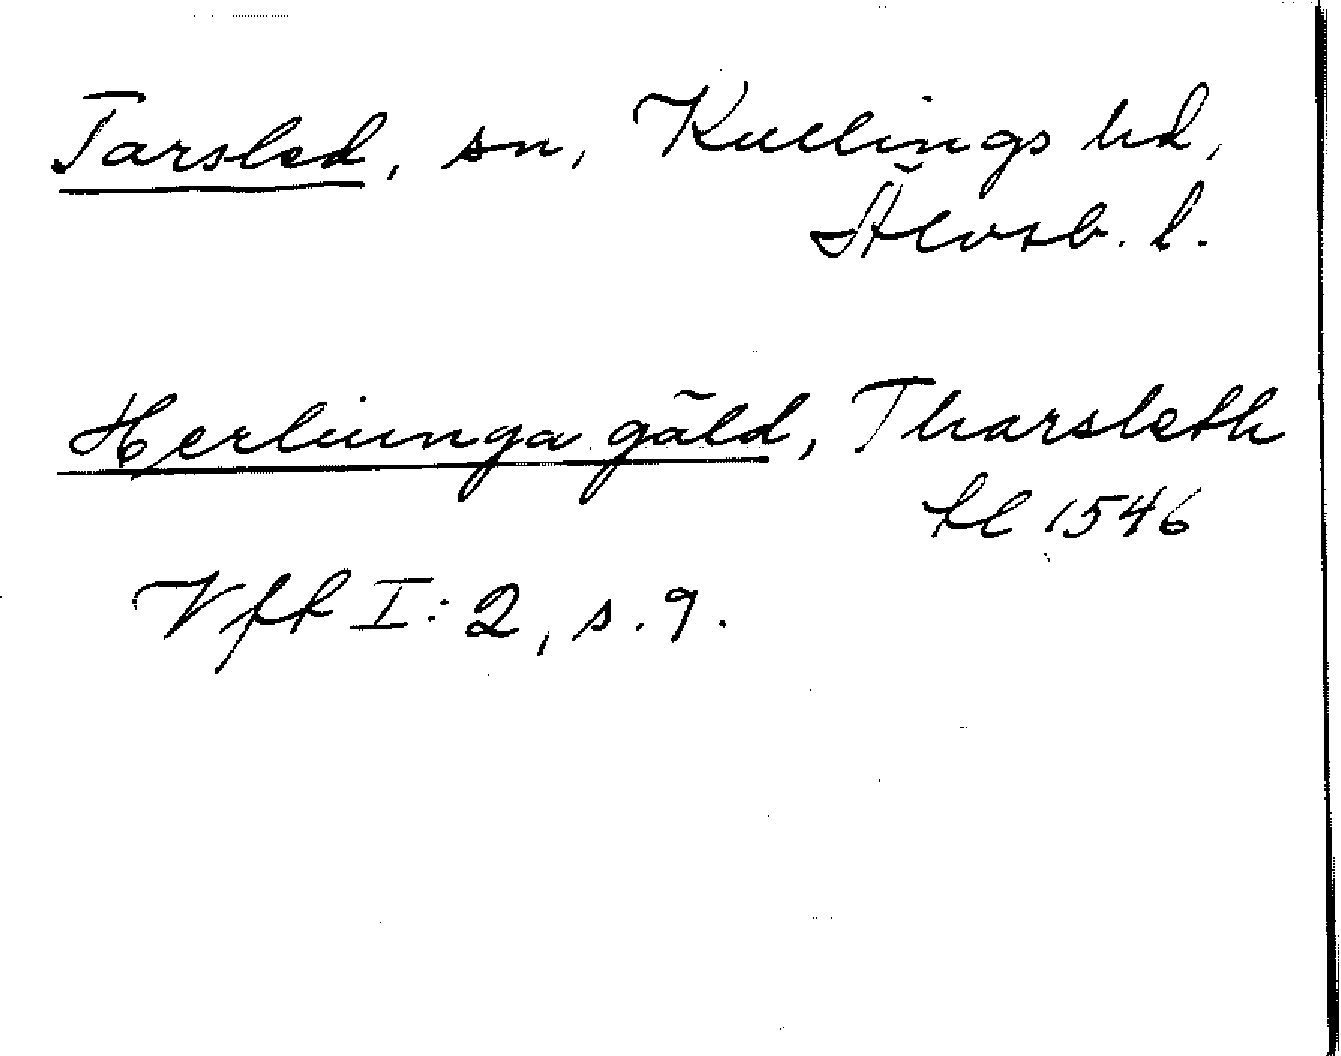 Tarsled, sn, Kullings hd,
Älvsb. l.
Herliunga gäld, Tharsleth
tl 1546
Vff I: 2, s. 9.